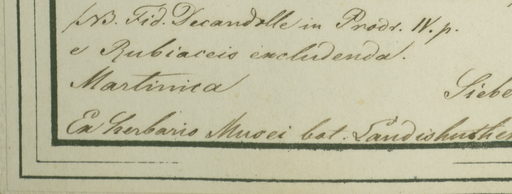 NB. Fid. Decandolle in Prodr. IV. p.
e Rubiaceis excludenda.
Martinica Siebe
Ex herbario Musei bot. Landishuthen